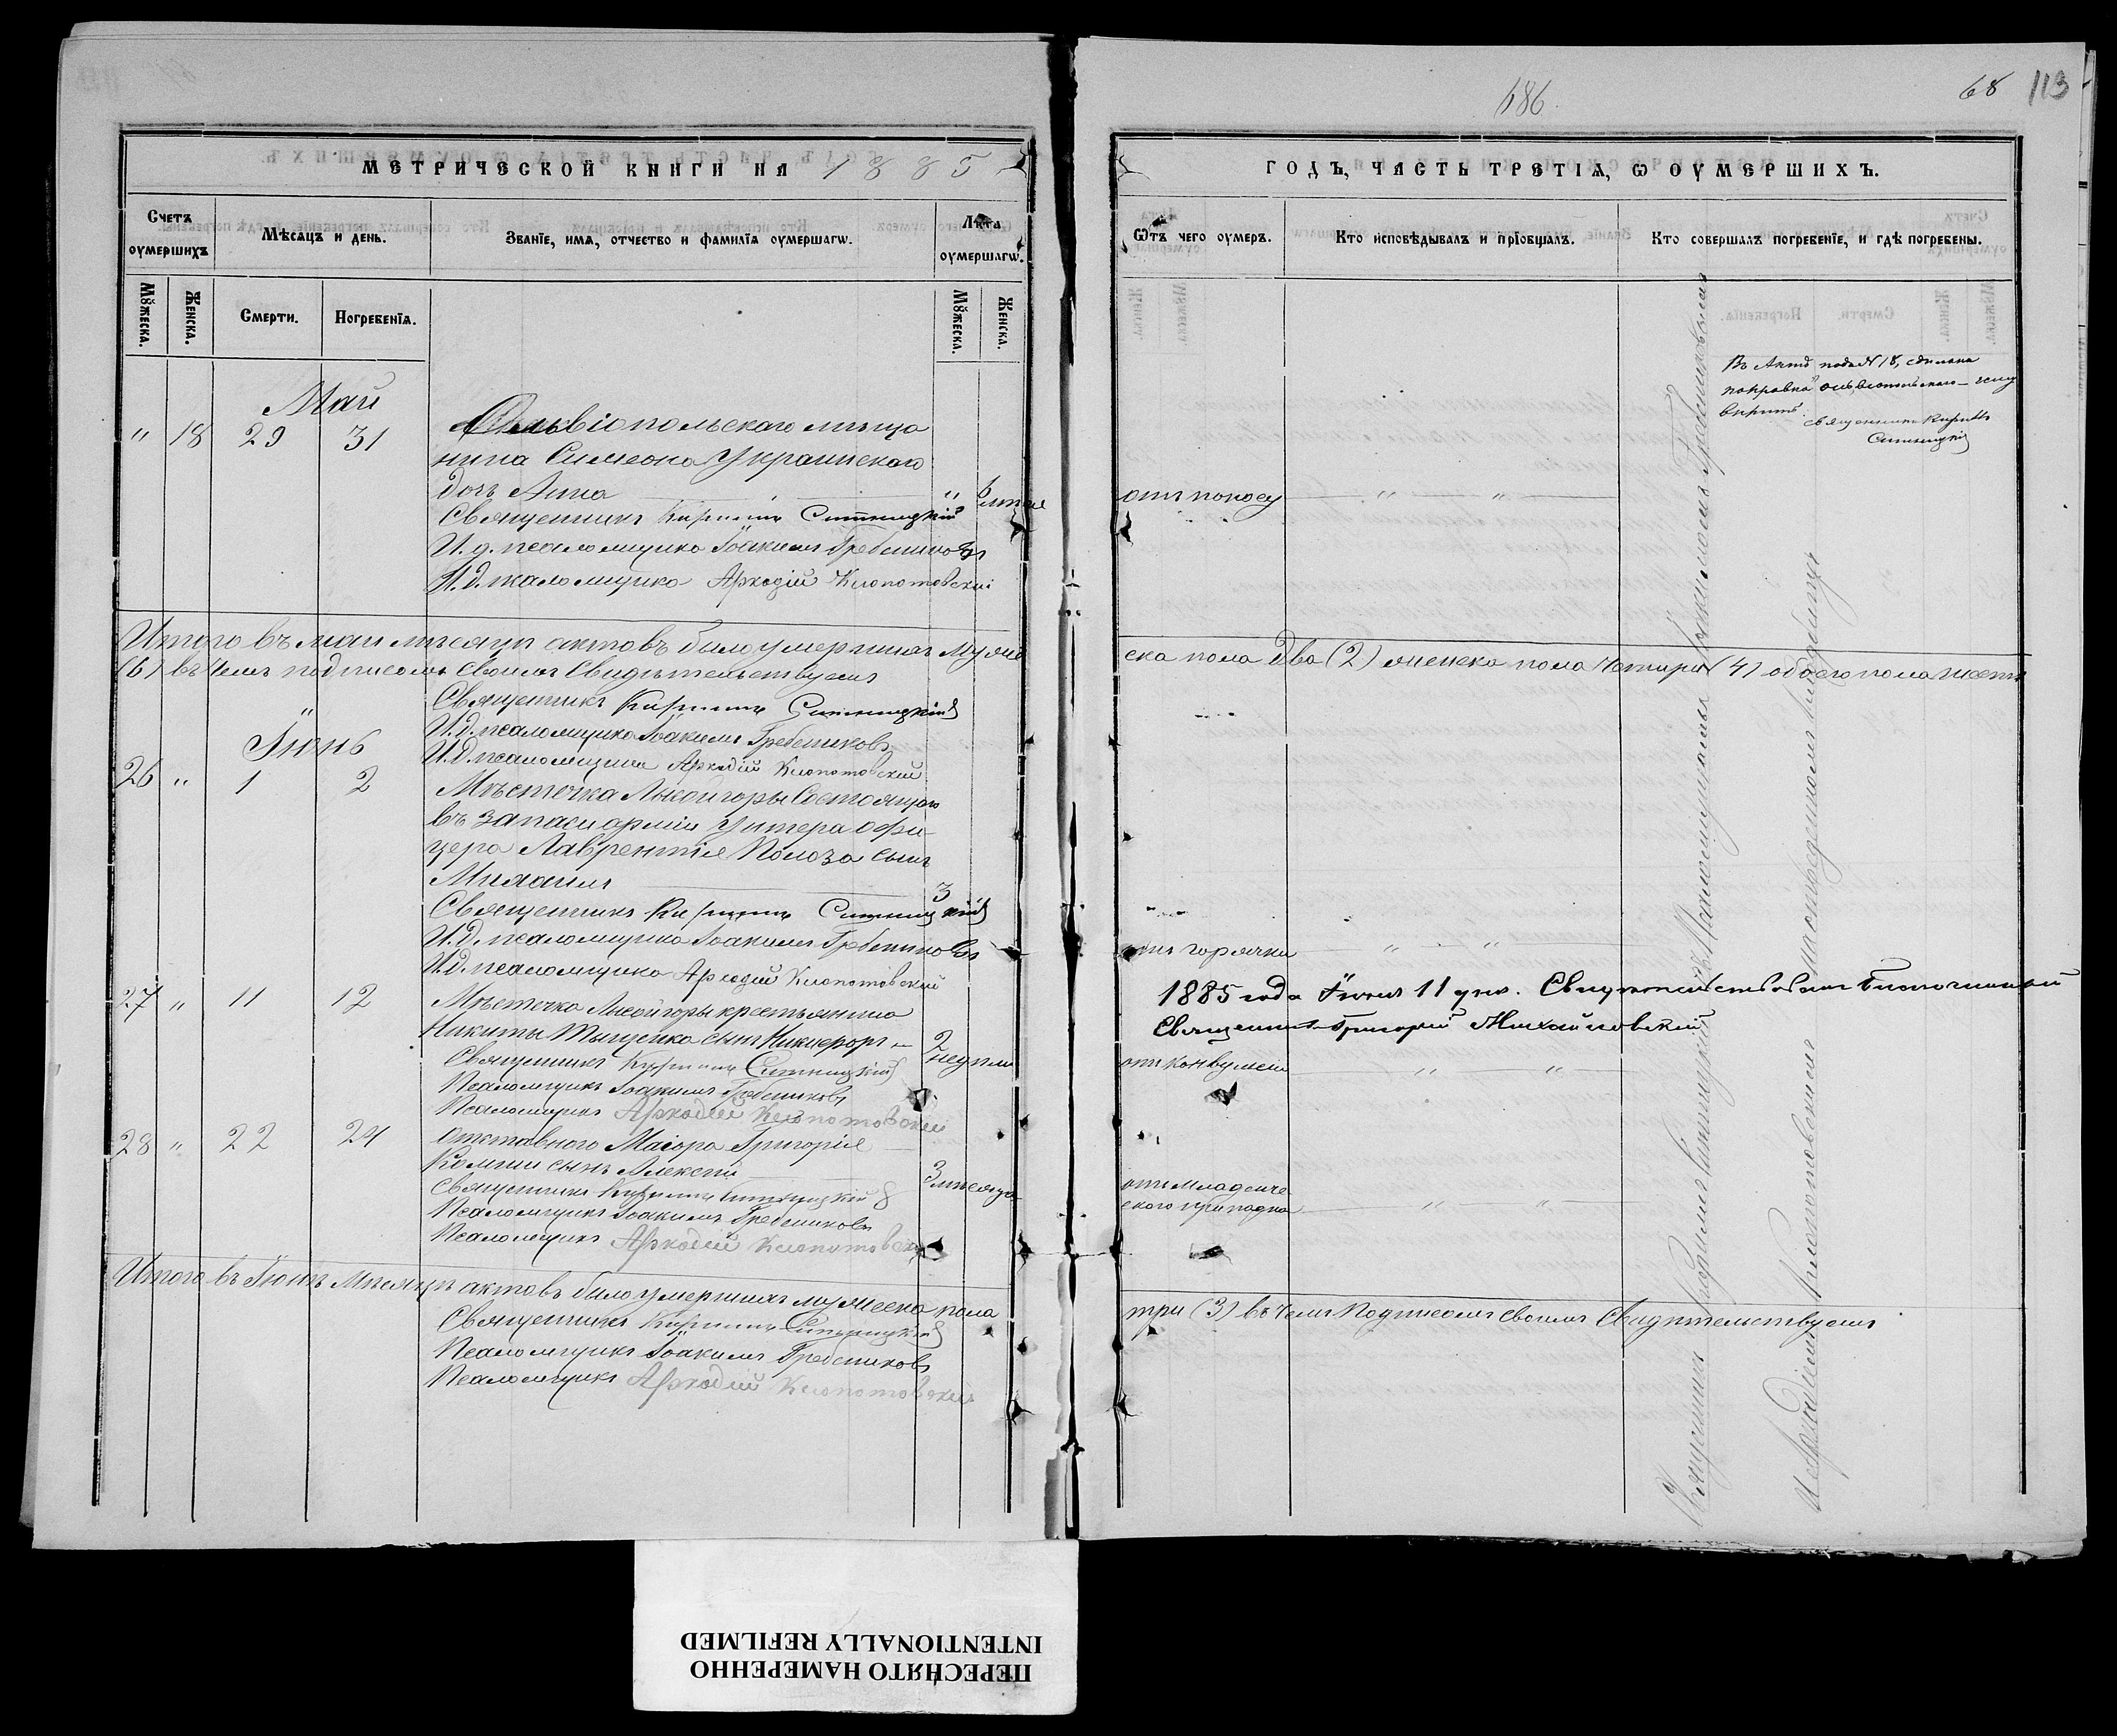 МЕТРИЧЕСКОЙ КНИГИ НА 1885
Счетъ оумершихъ
Мѣсяцъ и день.
Званіе, имя, отчество и фамилія оумершагѡ.
Лѣта оумершагѡ.
Мꙋжеска.
Женска.
Смерти.
Погребенія.
Мꙋжеска.
Женска.
Май
" 18 29 31 Ольвіопольскаго мѣща
нина Симеона Украинскаго
дочь Анна " 6
Священникъ Кириллъ Ситницкій
И. д. псаломщика Іоакимъ Гребениковъ
И. д. псаломщика Аркадій Клопотовскій
Итого въ маи мѣсяцѣ актовъ было умершихъ муже
(6) въ чемъ подписомъ своимъ свидѣтельствуемъ
Священникъ Кириллъ Ситницкій
И. д. псаломщика Іоакимъ Гребениковъ
Іюнь
И. д. псаломщика Аркадій Клопотовскій
26 " 1 2 Мѣстечка Лысой горы состоящаго
въ запасѣ арміи унтера офи
цера Лаврентія Полоза сынъ
Михаилъ 3
Священникъ Кириллъ Ситницкій
И. д. псаломщика Іоакимъ Гребениковъ
И. д. псаломщика Аркадій Клопотовскій
27 " 11 12 Мѣстечка Лысой горы крестьянина
Никиты сынъ Никифоръ 2
недѣли
Священникъ Кириллъ Ситницкій
Псаломщикъ Іоакимъ Гребениковъ
Псаломщикъ Аркадій Клопотовскій
28 " 22 24 Отставного Маіора Григорія
сынъ Алексѣй 3 мѣсяца
Священникъ Кириллъ Ситницкій
Псаломщикъ Іоакимъ Гребениковъ
Псаломщикъ Аркадій Клопотовскій
Итого въ Іюнѣ мѣсяцѣ актовъ было умершихъ мужеска пола
Священникъ Кириллъ Ситницкій
Псаломщикъ Іоакимъ Гребениковъ
Псаломщикъ Аркадій Клопотовскій
186.
68 113
ГОДЪ, ЧАСТЬ ТРЕТІЯ, Ѡ ОУМЕРШИХЪ.
Ѿтъ чего оумеръ.
Кто исповѣдывалъ и пріобщалъ.
Кто совершалъ погребеніе, и гдѣ погребены.
Въ Актѣ подъ № 18, сдѣлана
поправка ольвіопольскаго — чему
вѣрить.
священникъ Кириллъ
Ситницкій
отъ поносу " "
ска пола два (2) женска пола четыри (4) обоего пола шесть
отъ горячки " "
1885 года Іюня 11 дня. Свидѣтельствовалъ Благочинный
Священникъ Григорій Михайловскій
отъ конвульсіи " "
отъ младенче
скаго припадка " "
три (3) въ чемъ подписомъ своимъ свидѣтельствуемъ
Священникъ Кирилъ Ситницкій съ Псаломщикомъ Іоакимомъ Гребениковымъ
и Аркадіемъ Клопотовскимъ
ПЕРЕСНЯТО НАМЕРЕННО
INTENTIONALLY REFILMED